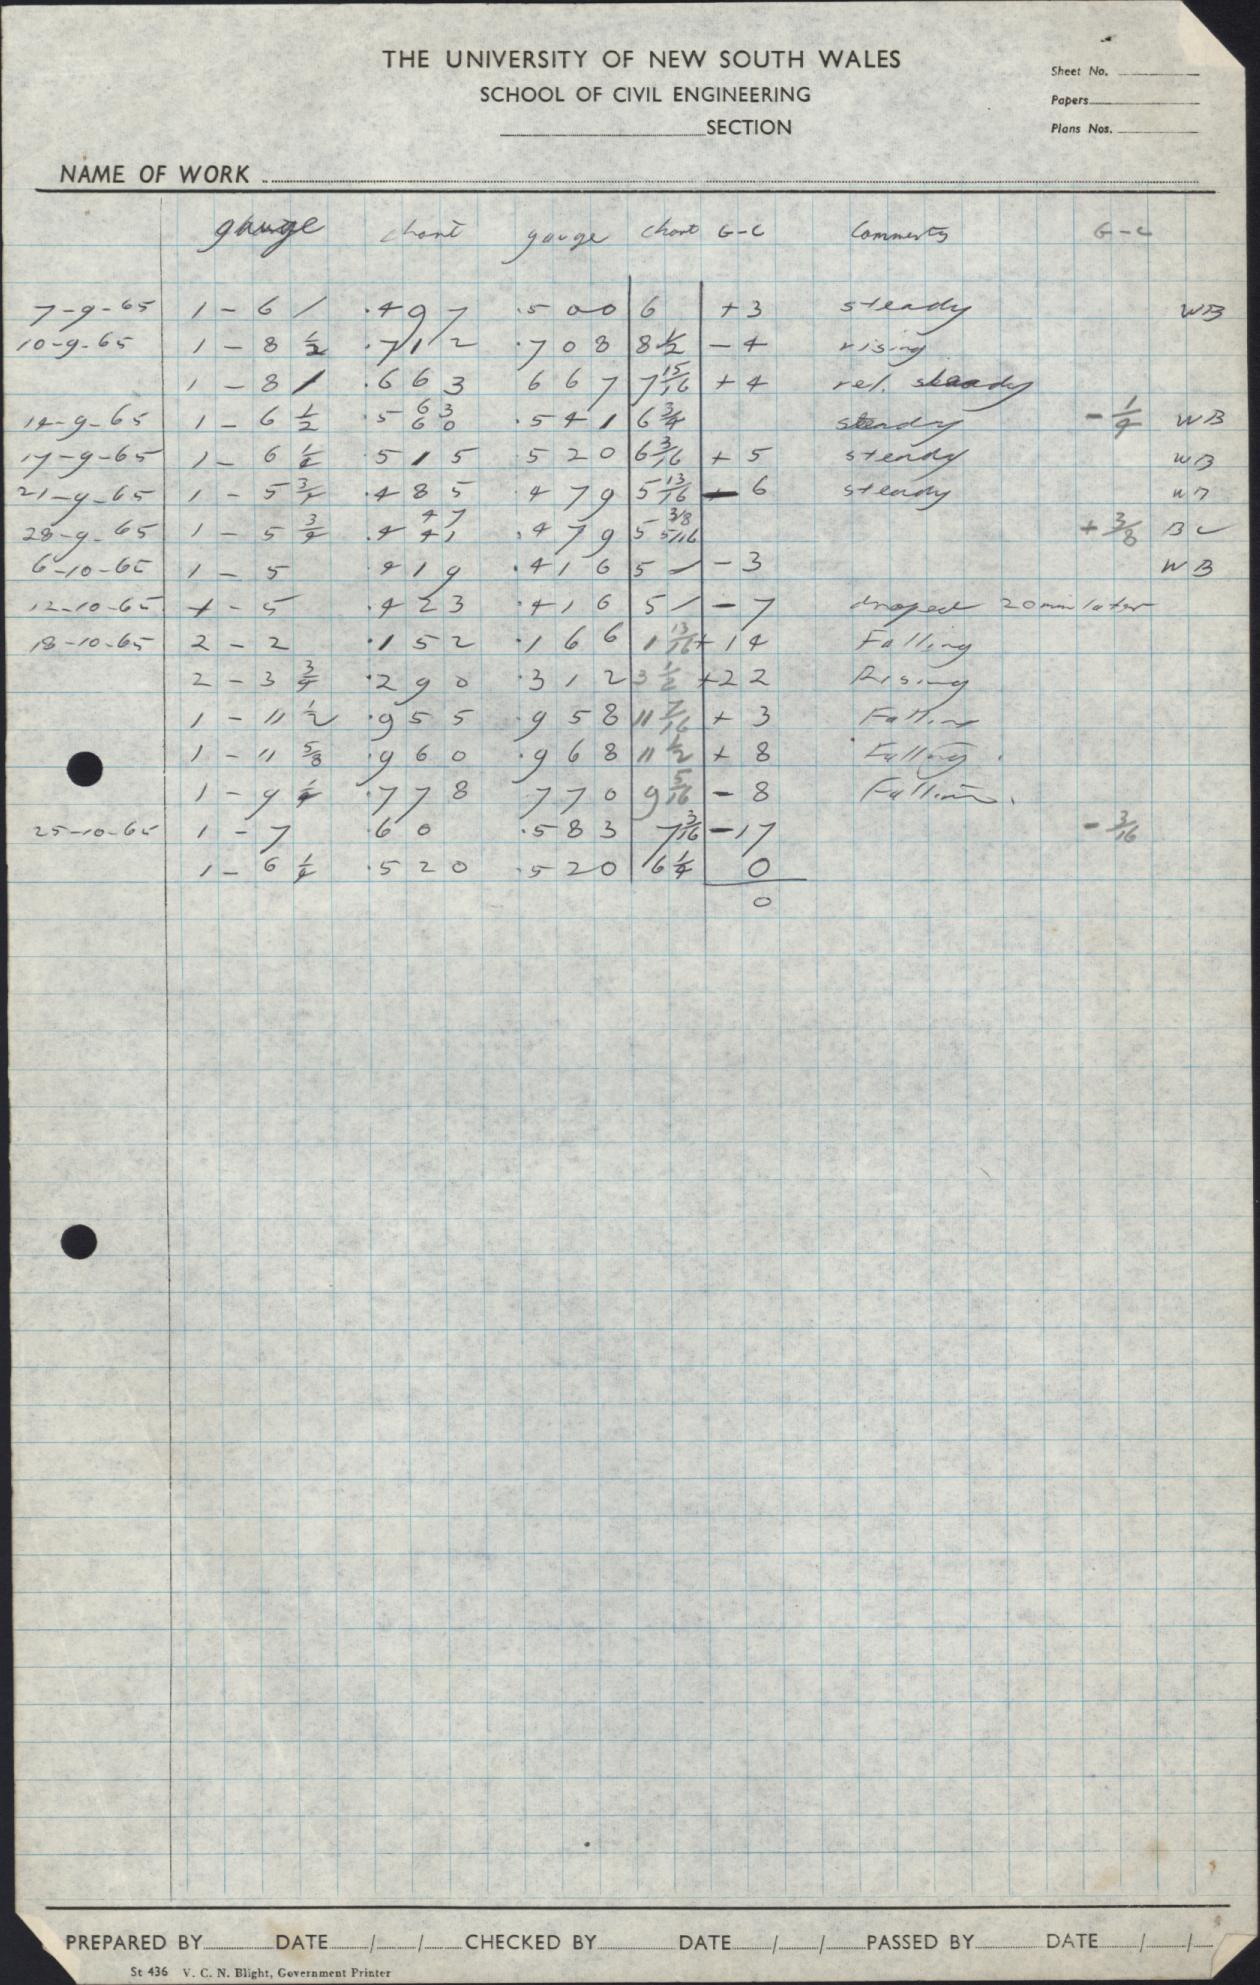 THE UNIVERSITY OF NEW SOUTH WALES
SCHOOL OF CIVIL ENGINEERING
SECTION
Sheet No.
Papers
Plans Nos.
NAME OF WORK
gauge chart gauge chart G-C Comments G-C
7-9-65 1-6 / .497 .500 6 +3 steady WB
10-9-65 1-8 1/2 .712 .708 8 1/2 -4 rising
1-8 / .663 667 7 15/16 +4 rel. steady
14-9-65 1-6 1/2 .5 63 60 .541 6 3/4 steady -1/4 WB
17-9-65 1-6 1/4 .515 520 6 3/16 +5 steady WB
21-9-65 1-5 3/4 .485 .479 5 13/16 -6 steady WB
28-9-65 1-5 3/4 .4 47 41 .479 5 3/8 5/16 +3/8 BC
6-10-65 1-5 .419 .416 5 / -3 WB
12-10-65 1-5 .423 .416 5 / -7 droped 20 min later
18-10-65 2-2 .152 .166 1 13/16 +14 Falling
2-3 3/4 .290 .312 3 1/2 +22 Rising
1-11 1/2 .955 .958 11 7/16 +3 Falling
1-11 5/8 .960 .968 11 1/2 +8 Falling.
1-9 1/4 .778 770 9 5/16 -8 Falling.
25-10-65 1-7 .60 .583 7 3/16 -17 -3/16
1-6 1/4 .520 .520 6 1/4 0
0
PREPARED BY DATE / / CHECKED BY DATE / / PASSED BY DATE / /
St 436 V. C. N. Blight, Government Printer